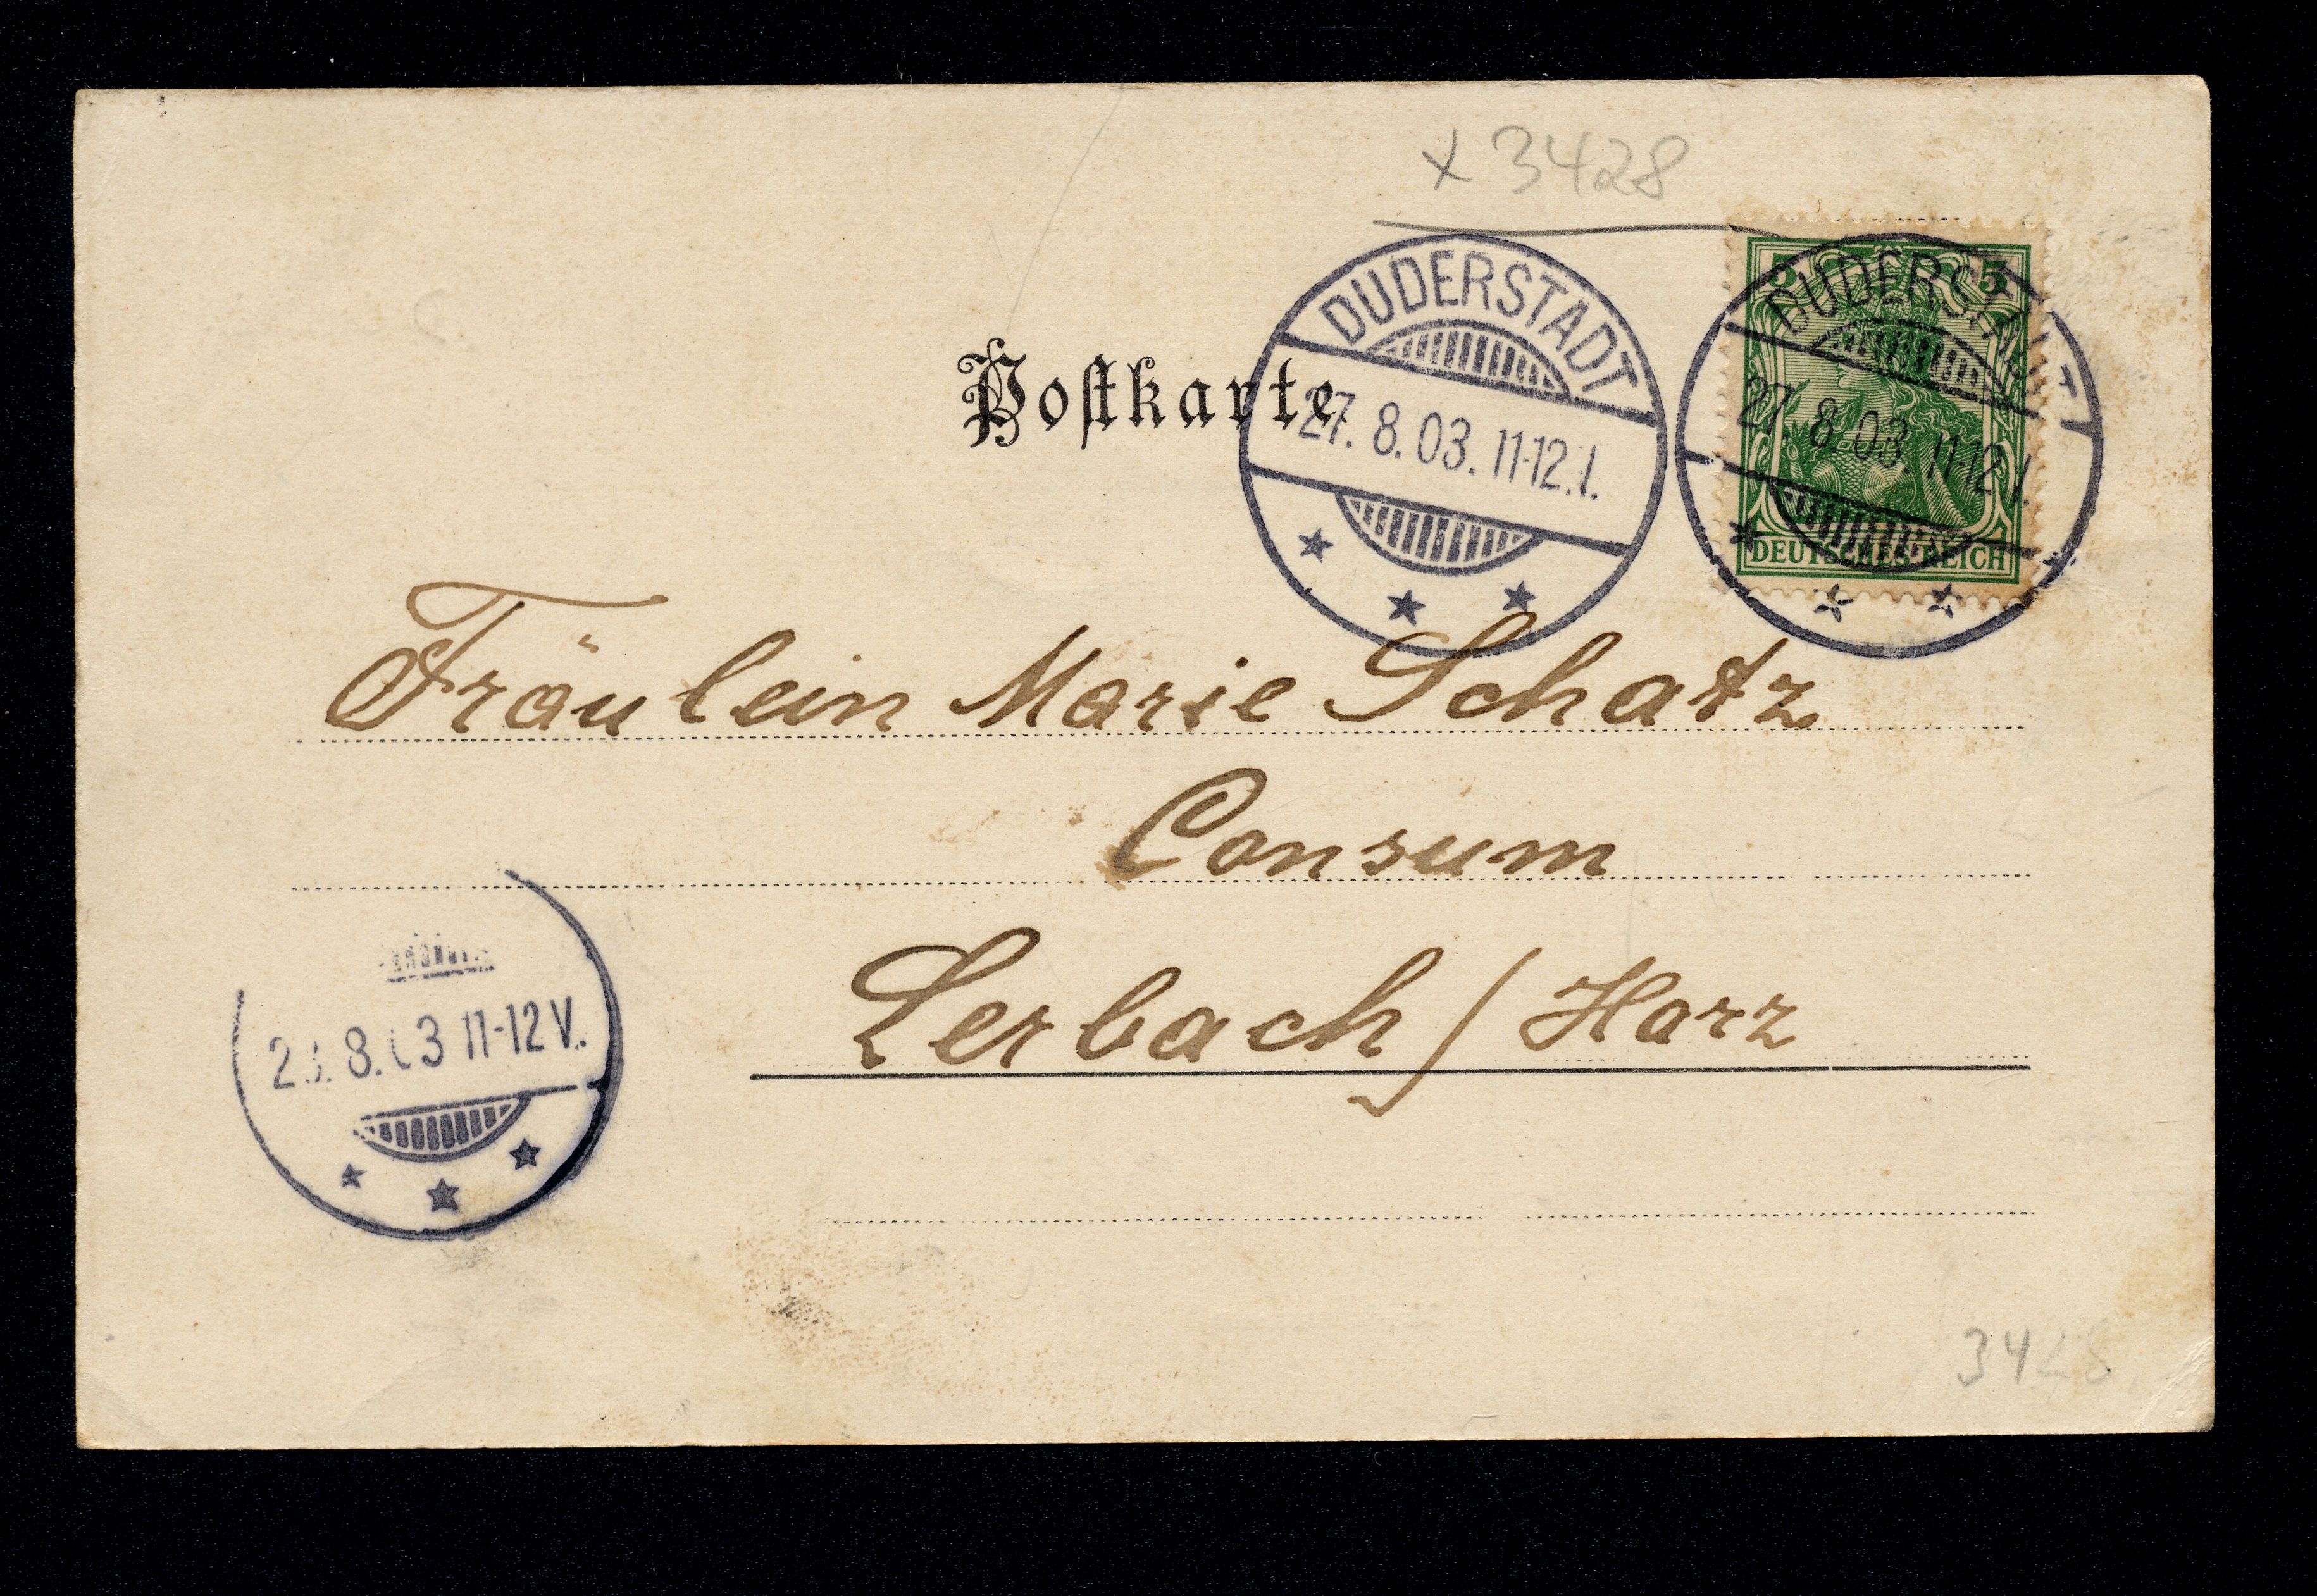 x 3428
5 5
DEUTSCHES REICH
DUDERSTADT
27. 8. 03. 11-12.V.
DUDERSTADT
27. 8. 03. 11-12.V.
Poſtkarte
Fräulein Marie Schatz
Consum
Lerbach / Harz
8. 3 11-12 V.
3428